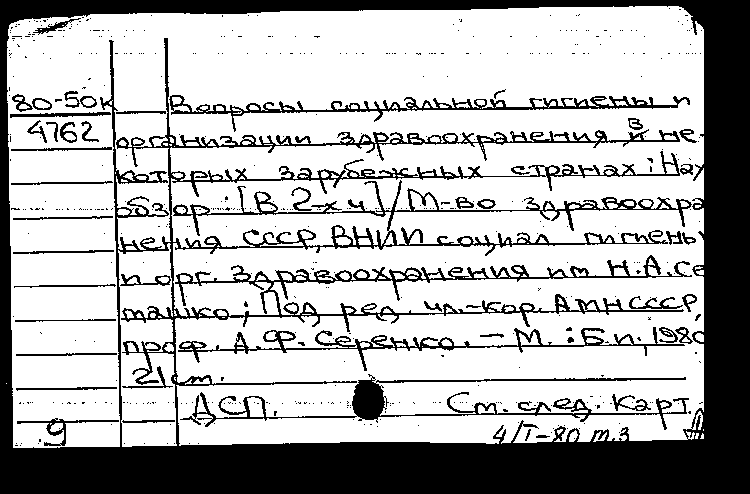 80-50к Вопросы социальной гигиены и
4762 организации здравоохранения в не-
которых зарубежных странах: Нау
обзор: [В 2-х ч]/М-во здравоохра
нения СССР, ВНИИ социал гигиены
и орг. здравоохранения им Н.А.Се
машко; Под ред. чл.-кор. АМН СССР,
проф. А.Ф. Серенко. — М. : Б.и., 1980
21 см.
ДСП. См. след. карт.
9 4/I-80 т.3